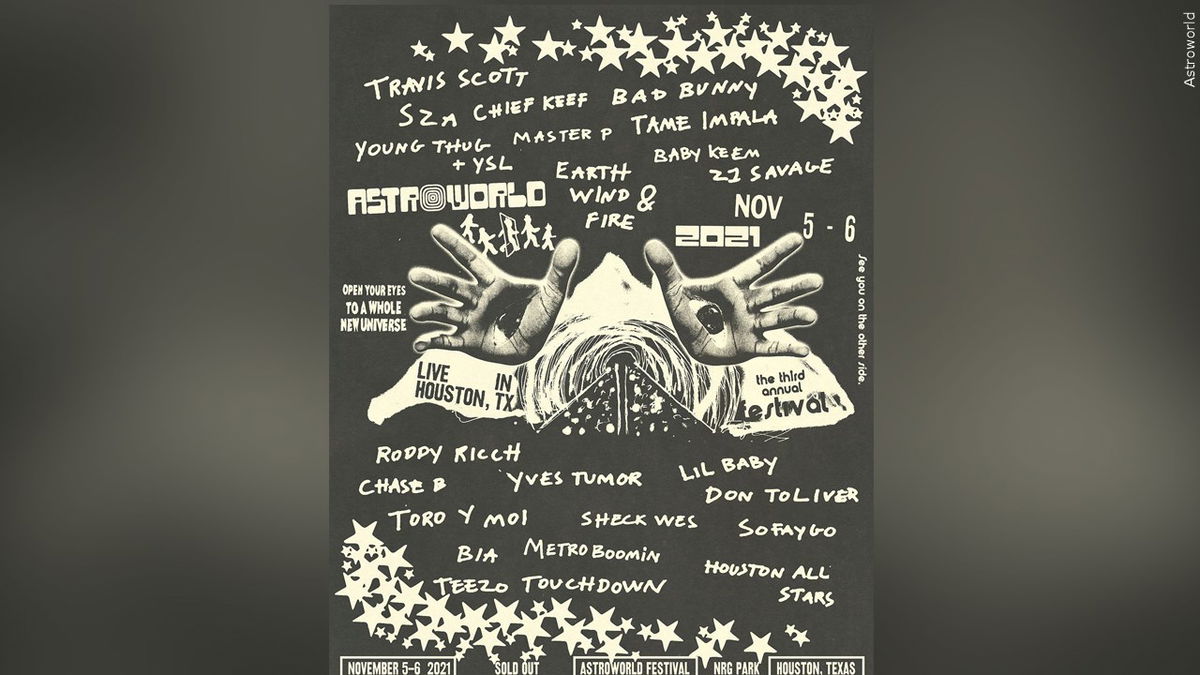 Astroworld
TRAVIS SCOTT
SZA CHIEF KEEF BAD BUNNY
YOUNG THUG + YSL
MASTER P TAME IMPALA
EARTH WIND & FIRE
BABY KEEM
21 SAVAGE
ASTROWORLD
NOV 5-6
2021
OPEN YOUR EYES
TO A WHOLE
NEW UNIVERSE
See you on the other side.
LIVE IN
HOUSTON, TX
the third
annual
festival
RODDY RICCH
CHASE B YVES TUMOR LIL BABY
DON TOLIVER
TORO Y MOI SHECK WES SOFAYGO
BIA METRO BOOMIN
TEEZO TOUCHDOWN
HOUSTON ALL
STARS
NOVEMBER 5-6 2021 SOLD OUT ASTROWORLD FESTIVAL NRG PARK HOUSTON, TEXAS